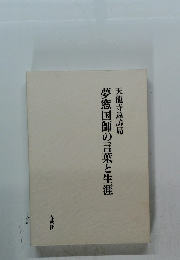 天龍寺遠諱局
夢窓国師の言葉と生涯